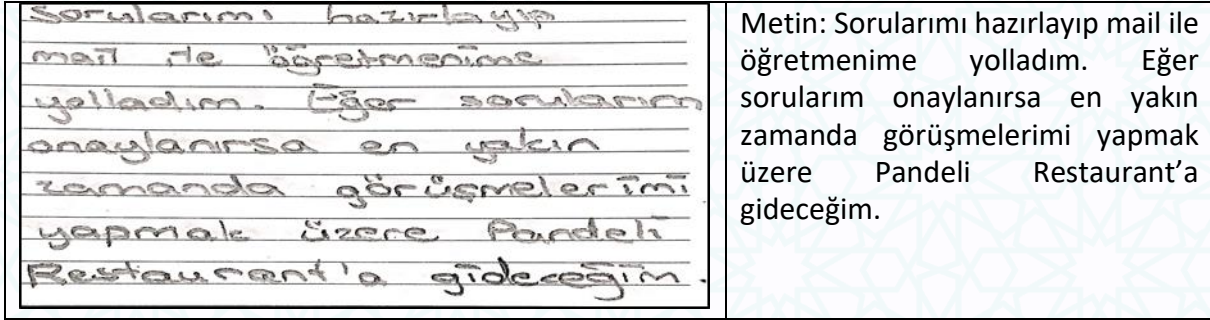 Sorularımı hazırlayıp
mail ile öğretmenime
yolladım. Eğer sorularım
onaylanırsa en yakın
zamanda görüşmelerimi
yapmak üzere Pandeli
Restaurant'a gideceğim.
Metin: Sorularımı hazırlayıp mail ile
öğretmenime yolladım. Eğer
sorularım onaylanırsa en yakın
zamanda görüşmelerimi yapmak
üzere Pandeli Restaurant’a
gideceğim.